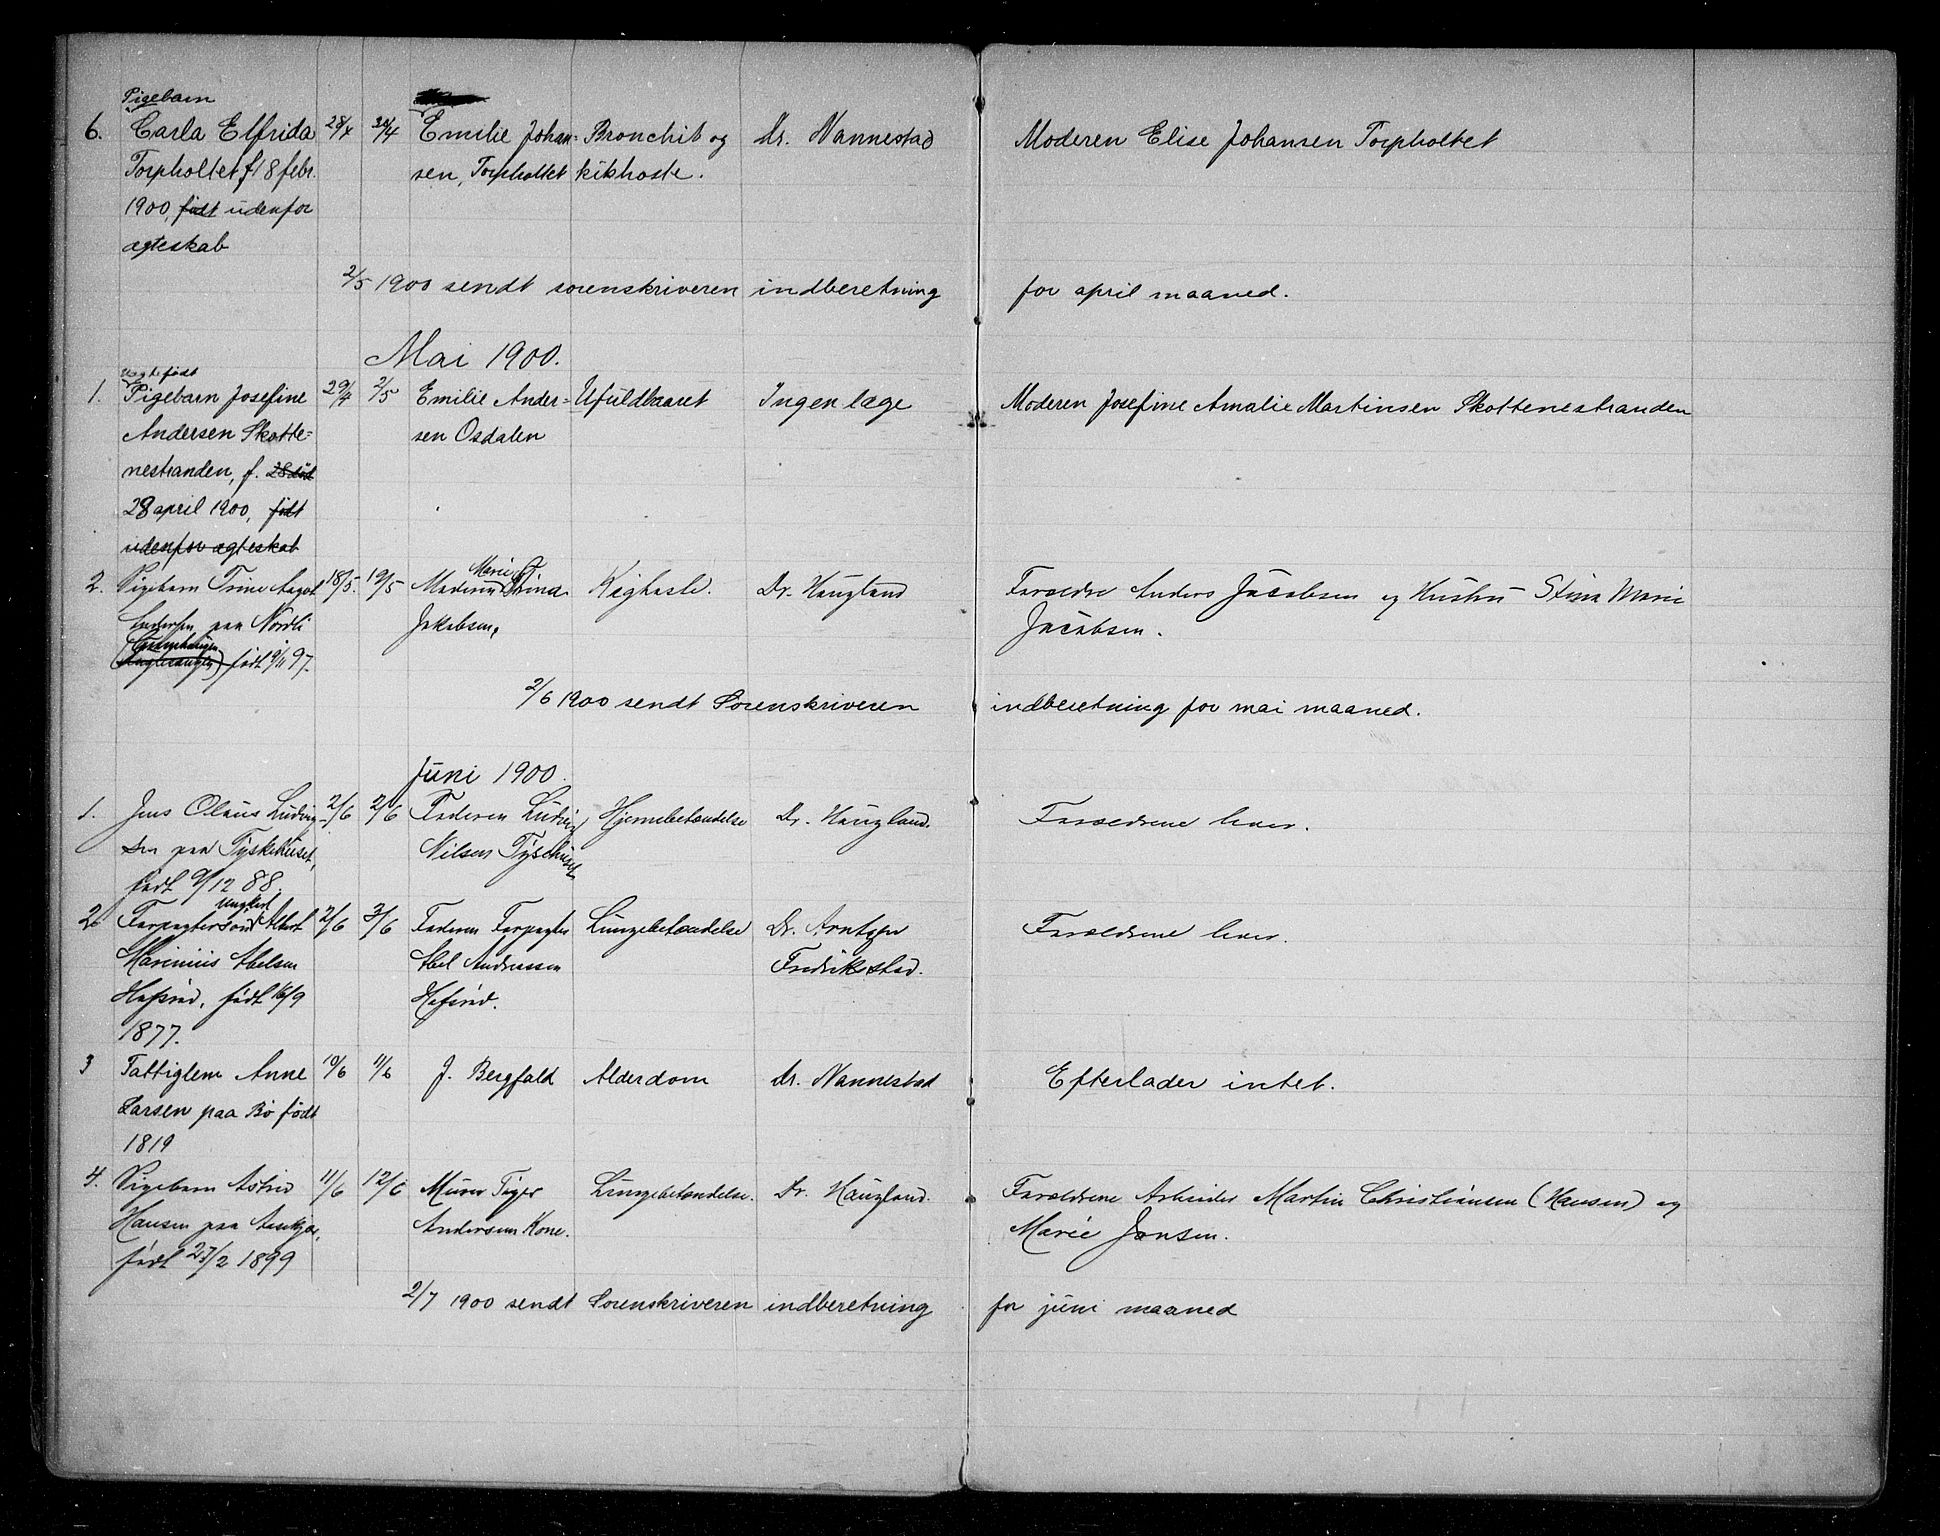 Pigebarn
6. Carla Elfrida 28/4 30/4 Emilie Johan- Bronchit og Dr. Nannestad Moderen Elise Johansen Torpholtet
Torpholtet f. 18 febr. sen, Torpholtet kikhoste.
1900, født udenfor
ægteskab
2/5 1900 sendt sorenskriveren indberetning for april maaned.
Mai 1900.
Uægtefødt
1. Pigebarn Josefine 29/4 2/5 Emilie Ander- Ufuldbaaret Ingen læge Moderen Josefine Amalie Martinsen Skottenestranden
Andersen Skotte- sen Osdalen
nestranden, f. 28
28 april 1900, født
udenfor ægteskab
Marie
2. Pigebarn Trine Aagot 18/5. 19/5 Moderen Stina Kighoste. Dr. Haugland Forældre Anders Jacobsen og Hustru Stina Marie
Andersen paa Nordli Jakobsen, Jacobsen.
født 9/11 97.
2/6 1900 sendt Sorenskriveren indberetning for mai maaned.
Juni 1900.
1. Jens Olaus Ludvig- 2/6 2/6 Faderen Ludvig Hjernebetændelse Dr. Haugland. Forældrene lever.
sen paa Tyskehuset, Nilsen Tyskehuset
født 9/12 88.
Ungkarl
2. Forpagtersøn Albert 2/6 3/6 Faderen Forpagter Lungebetændelse Dr. Arntzen Forældrene lever.
Marinius Abelsen Abel Andreassen Fredrikstad.
Hafsrød, født 16/9 Hafsrød.
1877.
3 Fattiglem Anne 10/6 11/6 J. Bergfald Alderdom Dr. Nannestad Efterlader intet.
Larsen paa Bø født
1819
4. Pigebarn Astrid 11/6 12/6 Murer Tiger Lungebetændelse. Dr. Haugland. Forældrene Arbeider Martin Christiansen (Hansen) og
Hansen paa Andersens Kone. Marie Jonsen.
født 27/2 1899
2/7 1900 sendt Sorenskriveren indberetning for juni maaned